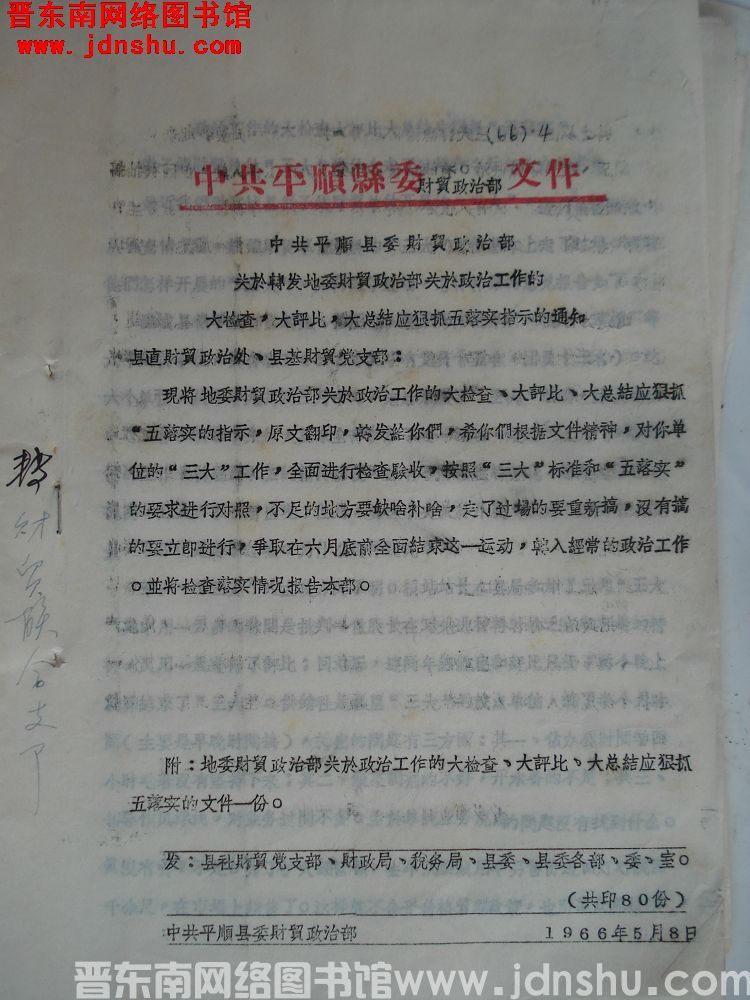 晋东南网络图书馆
www.jdnshu.com
(66)·4
中共平順縣委財貿政治部文件
中共平順县委財貿政治部
关於轉发地委財貿政治部关於政治工作的
大检查，大評比，大总結应狠抓五落实指示的通知
县直財貿政治处、县基財貿党支部：
現将地委財貿政治部关於政治工作的大检查、大評比、大总結应狠抓
“五落实的指示，原文翻印，轉发給你們，希你們根据文件精神，对你单
位的“三大”工作，全面进行检查驗收，按照“三大”标准和“五落实”
的要求进行对照，不足的地方要缺啥补啥，走了过場的要重新搞，沒有搞
的要立即进行，爭取在六月底前全面結束这一运动，轉入經常的政治工作
。並将检查落实情况报告本部。
附：地委財貿政治部关於政治工作的大检查、大評比、大总結应狠抓
五落实的文件一份。
发：县社財貿党支部、財政局、税务局、县委、县委各部、委、室。
（共印80份）
中共平順县委財貿政治部 1966年5月8日
转
财贸联合支
晋东南网络图书馆www.jdnshu.com